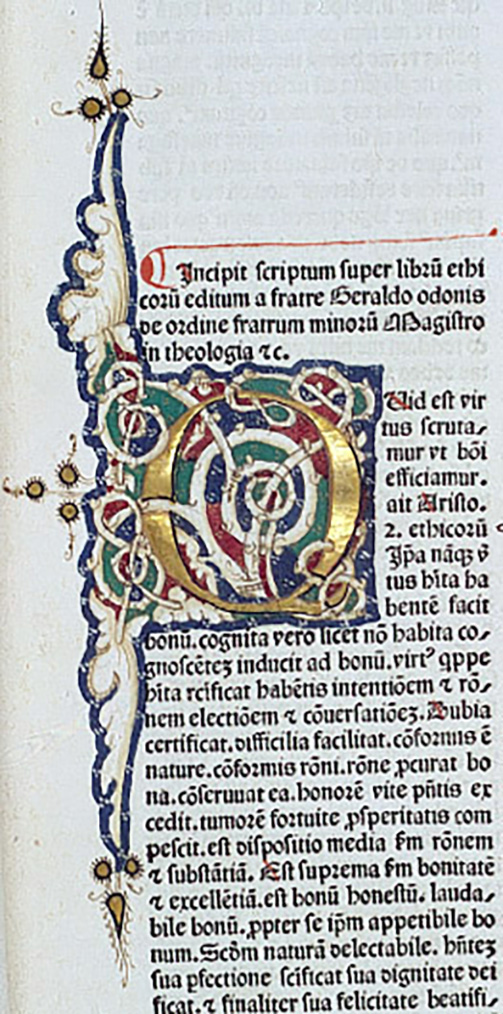 Incipit scriptum super librū ethi
corū editum a fratre Geraldo odonis
de ordine fratrum minorū Magistro
in theologia ⁊c.
Uid est vir
tus scruta⸗
mur vt bōi
efficiamur.
ait Aristo.
2. ethicorū
Ip̄a nāqꝫ v̄
tus h̄ita ha
bentē facit
bonū. cognita vero licet nō habita co⸗
gnoscētes inducit ad bonū. virtꝰ qppe
h̄ita rcificat habētis intentiōem ⁊ rō⸗
nem electiōem ⁊ cōuersatiōeꝫ. Dubia
certificat. difficilia facilitat. cōformis ē
nature. cōformis rōni. rōne ꝓcurat bo
na. cōseruat ea. honorē vite pn̄tis ex
cedit. tumorē fortuite ꝓsperitatis com
pescit. est dispositio media s̄m rōnem
⁊ substātiā. Est suprema s̄m bonitatē
⁊ excellētiā. est bonū honestū. lauda⸗
bile bonū. ꝓpter se ip̄m appetibile bo
num. Scd̄m naturā delectabile. hn̄teꝫ
sua ꝑfectione scificat sua dignitate dei
ficat. ⁊ finaliter sua felicitate beatifi⸗